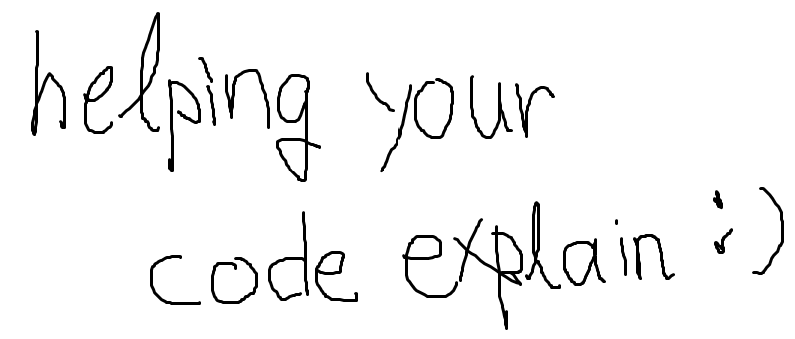 helping your
code explain :)